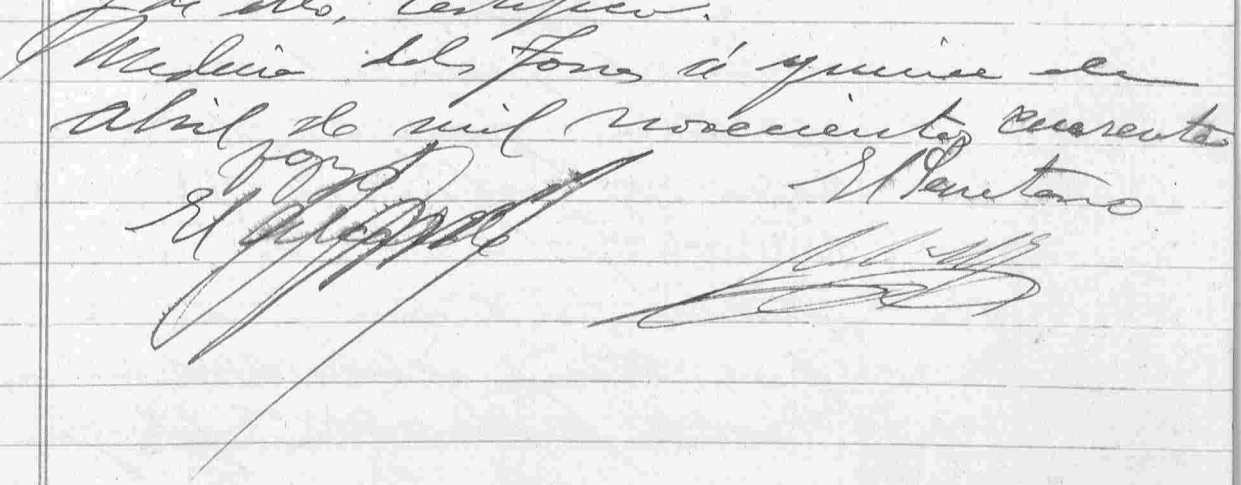 de ello, certifico.
Medina de las Torres á quince de
abril de mil novecientos cuarenta
El
El Secretario